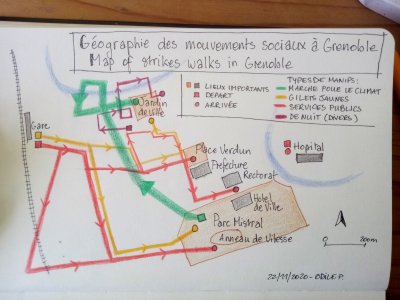 Géographie des mouvements sociaux à Grenoble
Map of strikes walks in Grenoble
LIEUX IMPORTANTS
DÉPART
ARRIVÉE
TYPES DE MANIFS:
MARCHE POUR LE CLIMAT
GILETS JAUNES
SERVICES PUBLICS
DE NUIT (DIVERS)
Gare
Jardin
de ville
Place Verdun
Préfecture
Rectorat
Hôtel
de Ville
Hopital
Parc Mistral
Anneau de Vitesse
0 200m
22/11/2020 - ODILE P.